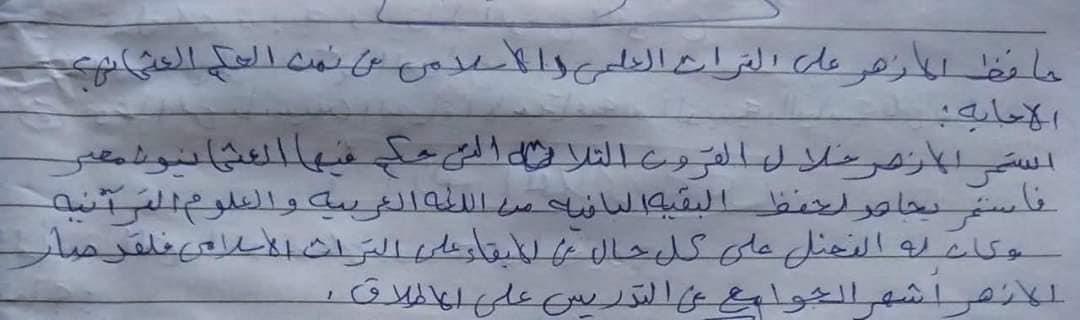 حافظ الازهر على التراث العلمى والاسلامى فى زمن الحكم العثمانى؟
الاجابه:
استمر الازهر خلال القرون الثلاثه التى حكم فيها العثمانيون مصر
فاستمر يجاهد لحفظ البقيه الباقيه من اللغه العربيه والعلوم القرآنيه
وكان له الفضل على كل حال فى الابقاء على التراث الاسلامى فلقد صار
الازهر أشهر الجوامع فى التدريس على الاطلاق.